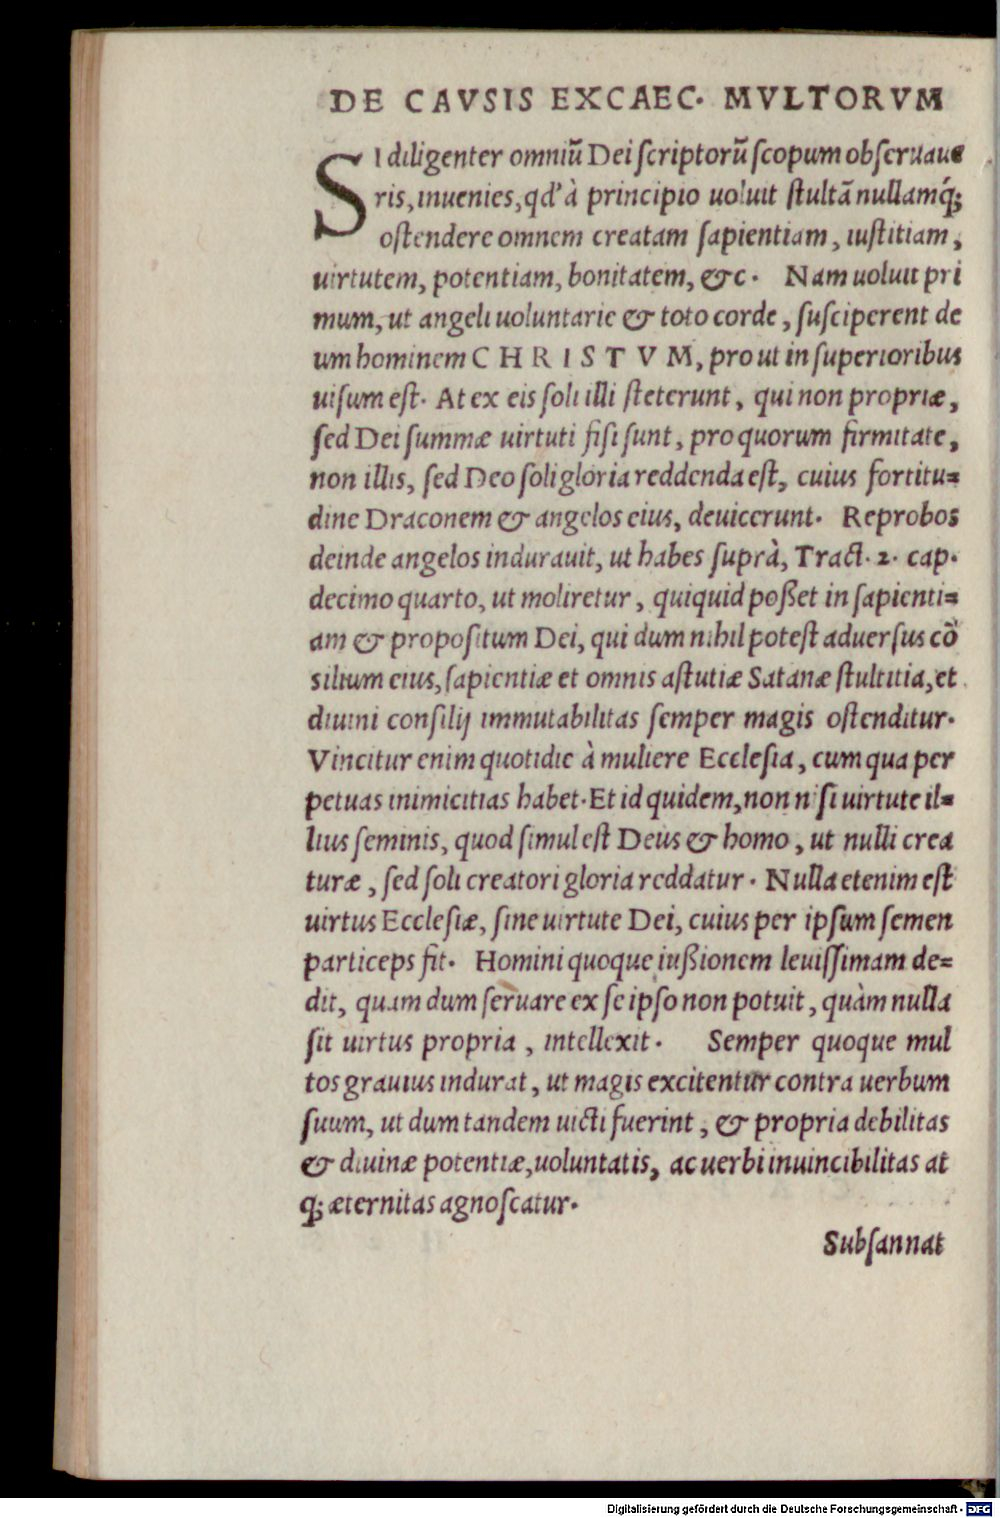 DE CAVSIS EXCAEC. MVLTORVM
SI diligenter omniũ Dei ſcriptorũ ſcopum obſeruaue
ris, inuenies, qd' à principio uoluit ſtultã nullamq́;
oſtendere omnem creatam ſapientiam, iuſtitiam,
uirtutem, potentiam, bonitatem, &c. Nam uoluit pri
mum, ut angeli uoluntarie & toto corde, ſuſciperent de
um hominem CHRISTVM, pro ut in ſuperioribus
uiſum eſt. At ex eis ſoli illi ſteterunt, qui non propriæ,
ſed Dei ſummæ uirtuti fiſi ſunt, pro quorum firmitate,
non illis, ſed Deo ſoli gloria reddenda eſt, cuius fortitu=
dine Draconem & angelos eius, deuicerunt. Reprobos
deinde angelos indurauit, ut habes ſuprà, Tract. 2. cap.
decimo quarto, ut moliretur, quiquid poßet in ſapienti=
am & propoſitum Dei, qui dum nihil poteſt aduerſus cõ
silium eius, ſapientiæ et omnis aſtutiæ Satanæ ſtultitia, et
diuini conſilij immutabilitas ſemper magis oſtenditur.
Vincitur enim quotidie à muliere Eccleſia, cum qua per
petuas inimicitias habet. Et id quidem, non niſi uirtute il=
lius ſeminis, quod ſimul eſt Deus & homo, ut nulli crea
turæ, ſed ſoli creatori gloria reddatur. Nulla etenim eſt
uirtus Eccleſiæ, ſine uirtute Dei, cuius per ipſum ſemen
particeps fit. Homini quoque iußionem leuiſſimam de=
dit, quam dum ſeruare ex ſe ipſo non potuit, quàm nulla
ſit uirtus propria, intellexit. Semper quoque mul
tos grauius indurat, ut magis excitentur contra uerbum
ſuum, ut dum tandem uicti fuerint, & propria debilitas
& diuinæ potentiæ, uoluntatis, ac uerbi inuincibilitas at
q; æternitas agnoſcatur.
Subſannat
Digitalisierung gefördert durch die Deutsche Forschungsgemeinschaft - DFG